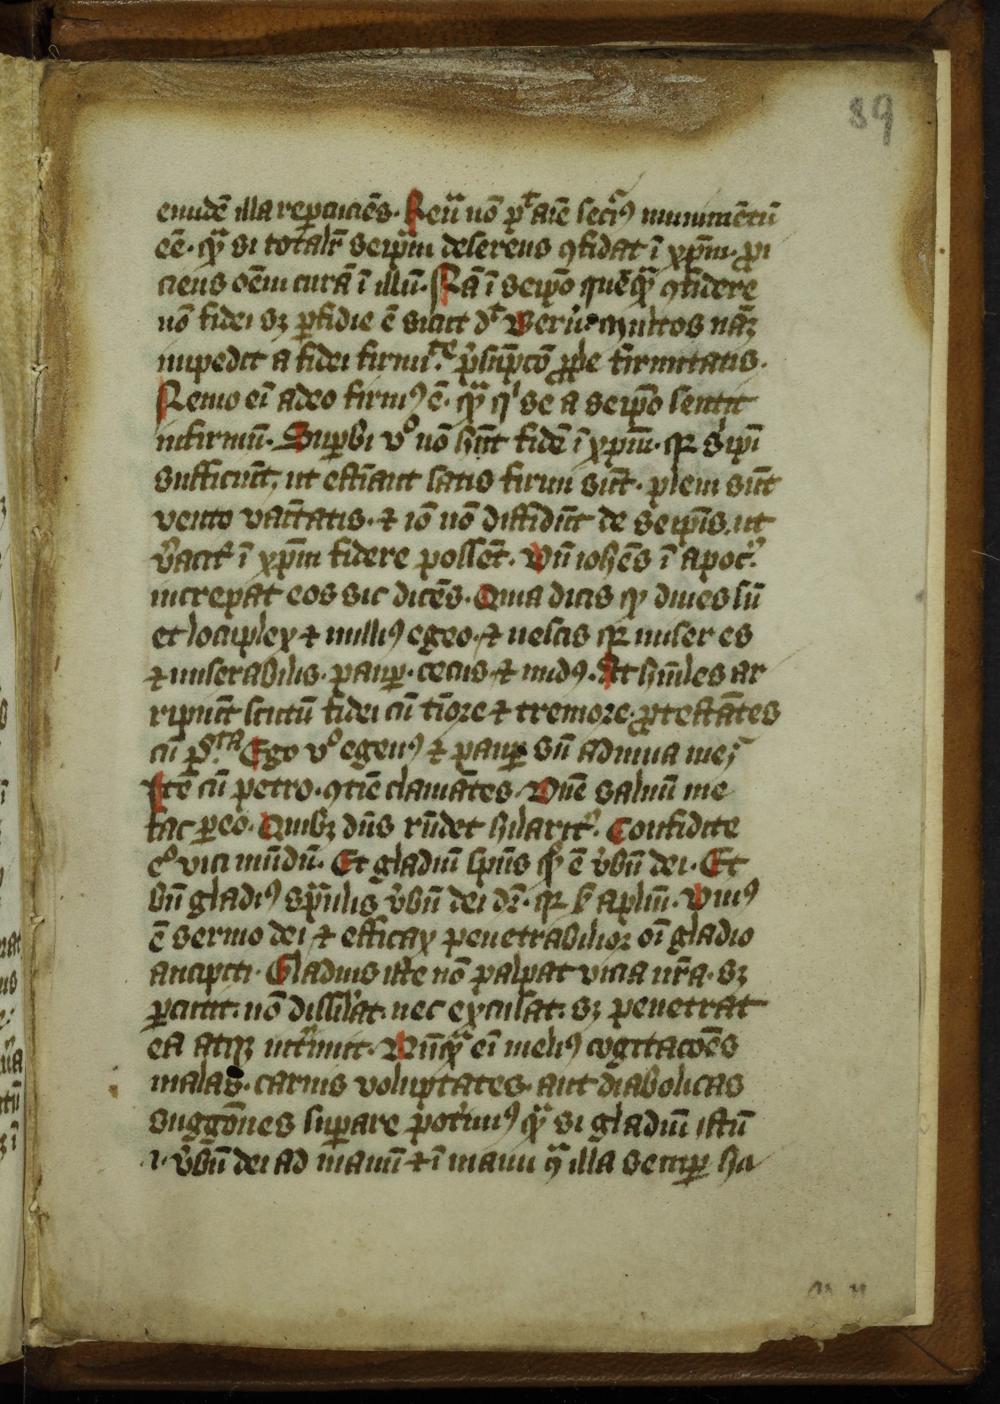 89
eiusdē illa repciciēs. Reū nō pt aīe secrius munimētū
eē. qͣ si totalr seipm deserens ɔfidat ī xpm. pi
ciens oēm curā ī illū. Nā ī seipo quēqͣ ɔfidere
nō fidei sꝫ ꝑfidie ē sicut dt Bern9 multos naꝫ
impedit a fidei firmitate p̄sūpcō ꝓp̄e firmitatis.
Nemo eī adeo firm9 ē. qͣ qi se a seipo sentit
infirmū. Suꝑbi vo nō hn̄t fidē ī xpm̄. qꝛ sipī
sufficiūt, ut estīant satis firmi sūt. pleni sūt
vento vanitatis. ⁊ iō nō diffidūt de seipīs. ut
v̓acit̓ ī xpm fidere possēt. Vn̄ iohēs ī apoc̓.
increpat eos sic dicēs. Quia dicis qꝫ diues sū
et locuplex ⁊ nulli9 egeo. ⁊ nescis qꝛ miser es
⁊ miserabilis. pauꝑ. cecus. ⁊ nud9. At hūiles ar
ripiūt scutū fidei cū tīore ⁊ tremore. ꝓtestātes
cū ps̄.ta Ego vo egen9 ⁊ pauꝑ sū adiuua me
Itē cū petro. ɔtīe clamātes. Dn̄e saluū me
fac ꝑeo. Quibꝫ dn̄s rn̄det hilarit̓. Confidite
eo vici mūdū. Et gladiū spūs qd ē v̓bū dei. Et
bn̄ gladi9 spūalis v̓bū dei dr̄. qꝛ ẜ aplm̄. Viu9
ē sermo dei ⁊ efficax penetrabilioꝛ oī gladio
ancipiti. Gladius iste nō palpat vicia nr̄a. sꝫ
ꝑcutit. nō dissil̓at. nec excusat. sꝫ penetrat
ea atqꝫ int̓imit. Nūqͣ eī meli9 cogitacōēs
malas. carnis voluptates. aut diabolicas
suggōnes suꝑare potim9 qͣ si gladiū istū
.i. v̓bū dei ad manū ⁊ ī manu qͣ illa semꝑ ha